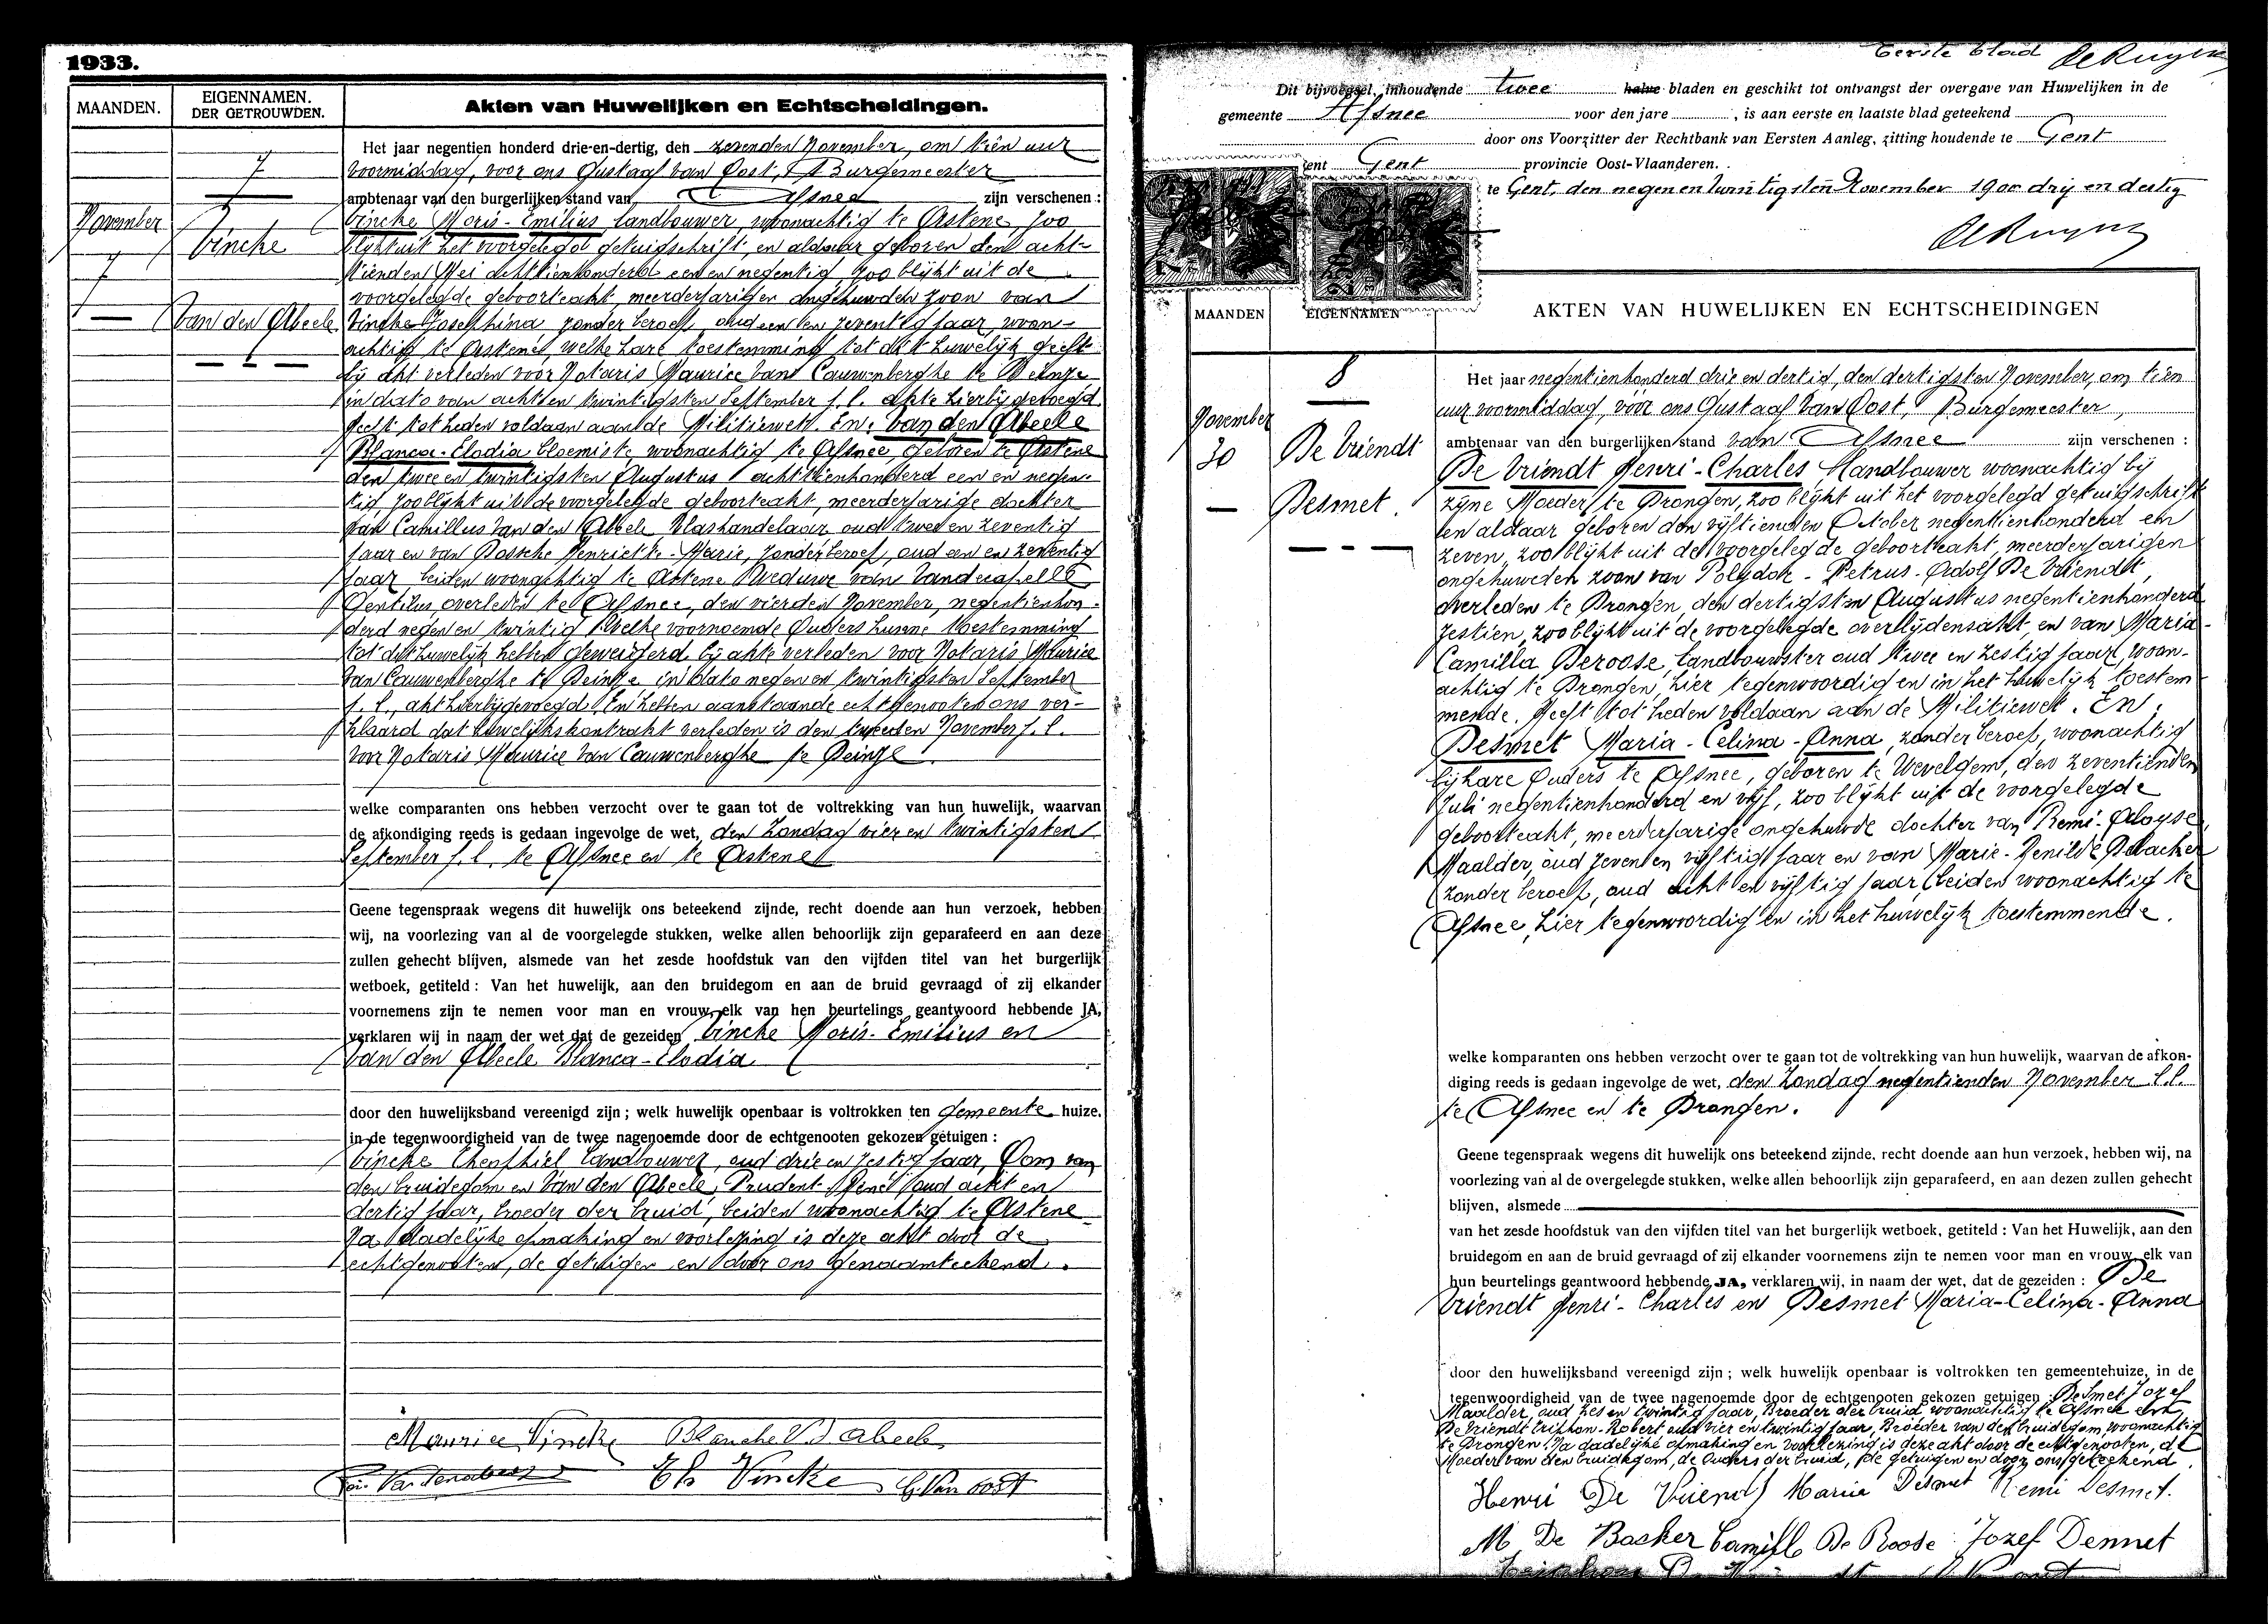 1933.
MAANDEN.
EIGENNAMEN.
DER GETROUWDEN.
Akten van Huwelijken en Echtscheidingen.
7
November
7
Vincke
Van den Abeele
Het jaar negentien honderd drie-en-dertig, den zevenden November, om tien uur
voormiddag, voor ons Gustaaf van Oost, Burgemeester
ambtenaar van den burgerlijken stand van Afsnee zijn verschenen :
Vincke Moris-Emilius, landbouwer, woonachtig te Astene, zoo
blijkt uit het voorgelegd getuigschrift, en aldaar geboren den acht-
tienden Mei achttienhonderd een en negentig, zoo blijkt uit de
voorgelegde geboorteakt, meerderjarigen ongehuwden zoon van
Vincke Josephina, zonder beroep, oud een en zeventig jaar, woon-
achtig te Astene, welke hare toestemming tot dit huwelijk geeft
bij akt verleden voor Notaris Maurice Van Cauwenberghe te Deinze
in dato van acht en twintigsten September j.l. akte hierbij gevoegd
heeft tot heden voldaan aan de Militiewet. En: Van den Abeele
Blanca-Elodia bloemiste, woonachtig te Afsnee, geboren te Astene
den twee en twintigsten Augustus achttienhonderd een en negen-
tig, zoo blijkt uit de voorgelegde geboorteakt, meerderjarige dochter
van Camillus Van den Abeele, Vlashandelaar, oud twee en zeventig
jaar en van Bossche Henriette-Marie, zonder beroep, oud een en zeventig
jaar, beiden woonachtig te Astene, Weduwe van Vandecapelle
Gentilus, overleden te Afsnee, den vierden November, negentienhon-
derd negen en twintig. Welke voornoemde Ouders hunne toestemming
tot dit huwelijk hebben geweigerd bij akte verleden voor Notaris Maurice
Van Cauwenberghe te Deinze in dato negen en twintigsten September
j.l., akt hierbijgevoegd. En hebben aanstaande echtgenooten ons ver-
klaard dat huwelijkskontrakt verleden is den tweeden November j.l.
voor Notaris Maurice Van Cauwenberghe te Deinze.
welke comparanten ons hebben verzocht over te gaan tot de voltrekking van hun huwelijk, waarvan
de afkondiging reeds is gedaan ingevolge de wet, den Zondag vier en twintigsten
September j.l. te Afsnee en te Astene
Geene tegenspraak wegens dit huwelijk ons beteekend zijnde, recht doende aan hun verzoek, hebben
wij, na voorlezing van al de voorgelegde stukken, welke allen behoorlijk zijn geparafeerd en aan deze
zullen gehecht blijven, alsmede van het zesde hoofdstuk van den vijfden titel van het burgerlijk
wetboek, getiteld : Van het huwelijk, aan den bruidegom en aan de bruid gevraagd of zij elkander
voornemens zijn te nemen voor man en vrouw, elk van hen beurtelings geantwoord hebbende JA,
verklaren wij in naam der wet dat de gezeiden Vincke Moris-Emilius en
Van den Abeele Blanca-Elodia
door den huwelijksband vereenigd zijn ; welk huwelijk openbaar is voltrokken ten gemeente huize.
in de tegenwoordigheid van de twee nagenoemde door de echtgenooten gekozen getuigen :
Vincke Theophiel, landbouwer, oud drie en zestig jaar, Oom van
den bruidegom en Van den Abeele, Prudent-René, oud acht en
dertig jaar, broeder der bruid, beiden woonachtig te Astene
Na dadelijke opmaking en voorlezing is deze akt door de
echtgenooten, de getuigen en door ons genaamteekend.
Maurice Vincke Blanche Vd Abeele
Th Vincke G. Van Oost
Eerste blad De Ruyver
Dit bijvoegsel, inhoudende twee halve bladen en geschikt tot ontvangst der overgave van Huwelijken in de
gemeente Afsnee voor den jare , is aan eerste en laatste blad geteekend
door ons Voorzitter der Rechtbank van Eersten Aanleg, zitting houdende te Gent
ent Gent provincie Oost-Vlaanderen.
te Gent, den negen en twintigsten November 1900 drij en dertig
De Ruyver
MAANDEN
EIGENNAMEN
AKTEN VAN HUWELIJKEN EN ECHTSCHEIDINGEN
8
November
30
De Vriendt
Desmet.
Het jaar negentienhonderd drie en dertig, den dertigsten November, om tien
uur voormiddag, voor ons Gustaaf Van Oost, Burgemeester,
ambtenaar van den burgerlijken stand van Afsnee zijn verschenen :
De Vriendt Henri-Charles, landbouwer woonachtig bij
zijne Moeder te Drongen, zoo blijkt uit het voorgelegd getuigschrift
en aldaar geboren den vijftienden October negentienhonderd en
zeven, zoo blijkt uit de voorgelegde geboorteakt, meerderjarigen
ongehuwden zoon van Polydor-Petrus-Adolf De Vriendt,
overleden te Drongen, den dertigsten Augustus negentienhonderd
zestien, zoo blijkt uit de voorgelegde overlijdensakt, en van Maria-
Camilla Deroose, landbouwster oud twee en zestig jaar, woon-
achtig te Drongen, hier tegenwoordig en in het huwelijk toestem-
mende. Heeft tot heden voldaan aan de Militiewet. En :
Desmet Maria-Celina-Anna, zonder beroep, woonachtig
bij hare Ouders te Afsnee, geboren te Wevelgem, den zeventienden
Juli negentienhonderd en vijf, zoo blijkt uit de voorgelegde
geboorteakt, meerderjarige ongehuwde dochter van Remi-Aloyse,
Maalder, oud zeven en vijftig jaar en van Marie-Renilde Debacker
zonder beroep, oud acht en vijftig jaar, beiden woonachtig te
Afsnee, hier tegenwoordig en in het huwelijk toestemmende.
welke komparanten ons hebben verzocht over te gaan tot de voltrekking van hun huwelijk, waarvan de afkon-
diging reeds is gedaan ingevolge de wet, den Zondag negentienden November l.l.
te Afsnee en te Drongen.
Geene tegenspraak wegens dit huwelijk ons beteekend zijnde, recht doende aan hun verzoek, hebben wij, na
voorlezing van al de overgelegde stukken, welke allen behoorlijk zijn geparafeerd, en aan dezen zullen gehecht
blijven, alsmede
van het zesde hoofdstuk van den vijfden titel van het burgerlijk wetboek, getiteld : Van het Huwelijk, aan den
bruidegom en aan de bruid gevraagd of zij elkander voornemens zijn te nemen voor man en vrouw, elk van
hun beurtelings geantwoord hebbende JA, verklaren wij, in naam der wet, dat de gezeiden : De
Vriendt Henri-Charles en Desmet Maria-Celina-Anna
door den huwelijksband vereenigd zijn ; welk huwelijk openbaar is voltrokken ten gemeentehuize, in de
tegenwoordigheid van de twee nagenoemde door de echtgenooten gekozen getuigen : Desmet Jozef
Maalder, oud zes en twintig jaar, Broeder der bruid woonachtig te Afsnee en
De Vriendt Triphon-Robert oud vier en twintig jaar, Broeder van den bruidegom, woonachtig
te Drongen. Na dadelijke opmaking en voorlezing is deze akt door de echtgenooten, de
Moeder van den bruidegom, de Ouders der bruid, de getuigen en door ons geteekend.
Henri De Vriendt Maria Desmet Remi Desmet.
M De Backer Camill De Roose Jozef Desmet